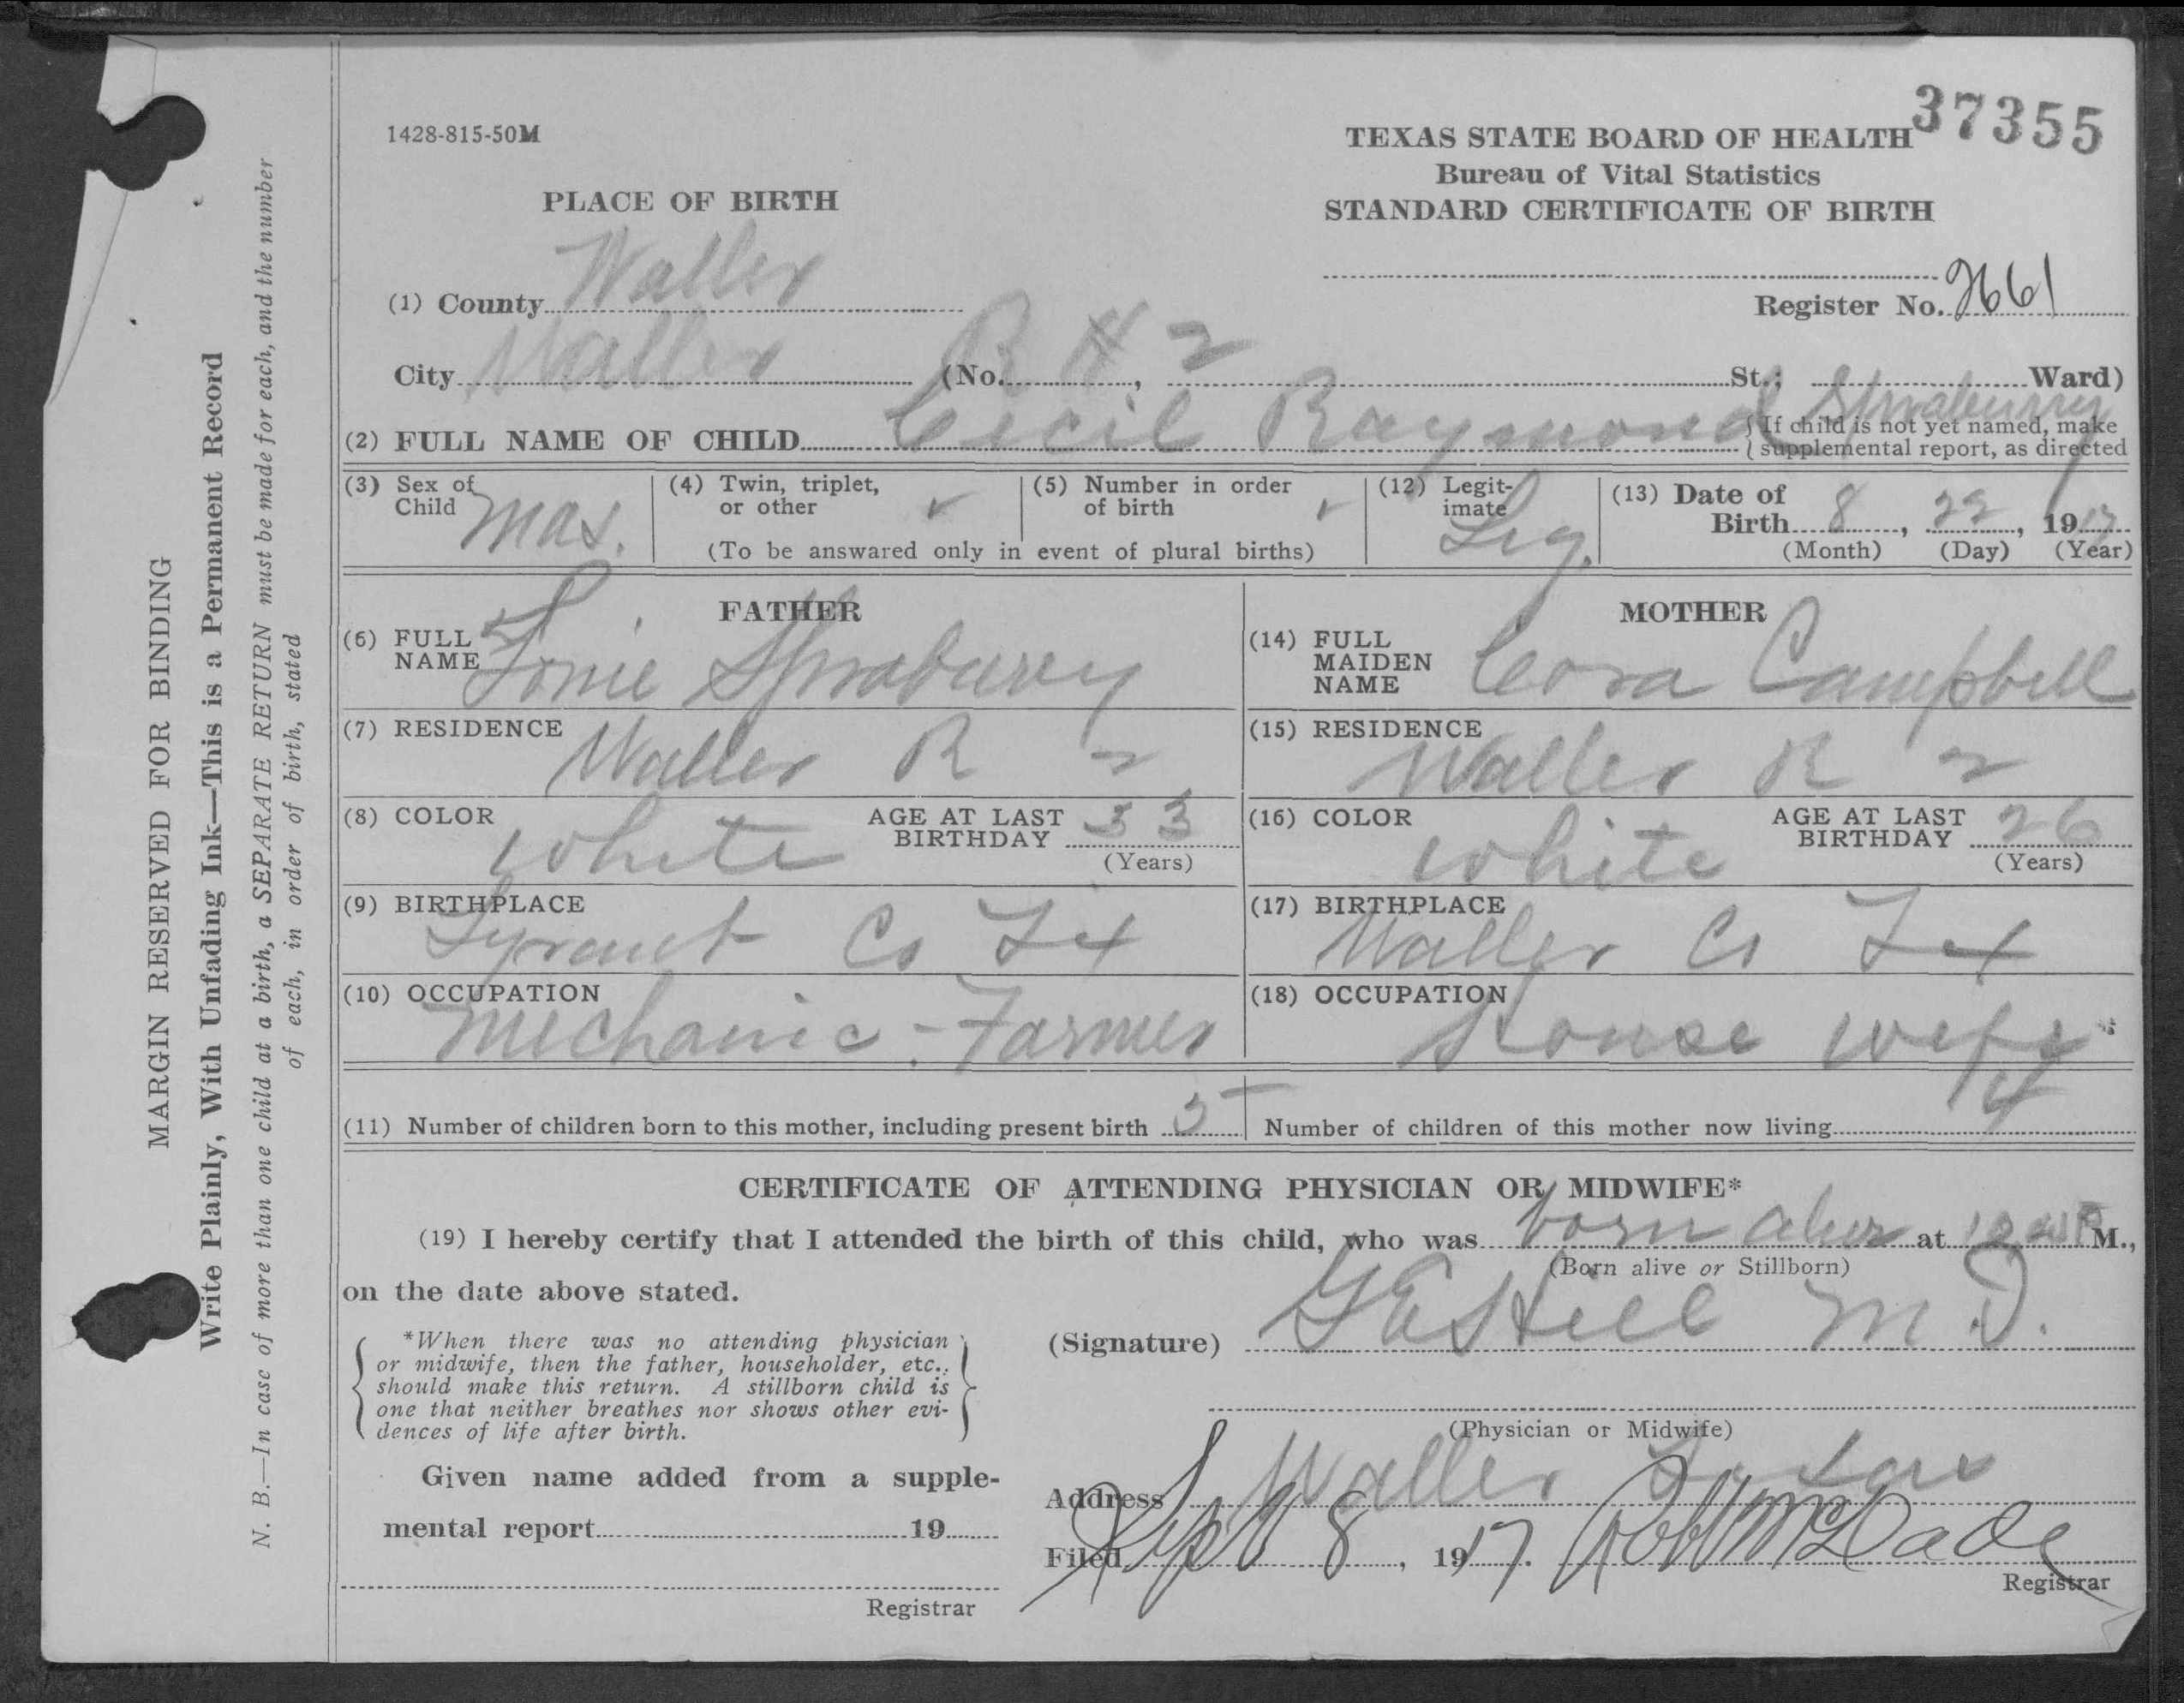 37355
1428-815-50M
TEXAS STATE BOARD OF HEALTH
Bureau of Vital Statistics
STANDARD CERTIFICATE OF BIRTH
PLACE OF BIRTH
(1) County Waller
Register No. 2661
City Waller (No. R # 2 , St.; Ward)
(2) FULL NAME OF CHILD Cecil Raymond Spraburry { If child is not yet named, make
supplemental report, as directed
(3) Sex of Child Mas. (4) Twin, triplet, or other ✓ (5) Number in order of birth ✓ (12) Legitimate Leg. (13) Date of Birth 8 , 22 , 1917
(To be answared only in event of plural births) (Month) (Day) (Year)
FATHER
(6) FULL NAME Spraburry
(7) RESIDENCE Waller R 2
(8) COLOR White AGE AT LAST BIRTHDAY 33 (Years)
(9) BIRTHPLACE Co Tx
(10) OCCUPATION Mechanic - Farmer
MOTHER
(14) FULL MAIDEN NAME Cora Campbell
(15) RESIDENCE Waller R 2
(16) COLOR White AGE AT LAST BIRTHDAY 26 (Years)
(17) BIRTHPLACE Waller Co Tx
(18) OCCUPATION House wife
(11) Number of children born to this mother, including present birth 5 Number of children of this mother now living 4
CERTIFICATE OF ATTENDING PHYSICIAN OR MIDWIFE*
(19) I hereby certify that I attended the birth of this child, who was born at M.,
(Born alive or Stillborn)
on the date above stated.
*When there was no attending physician
or midwife, then the father, householder, etc.,
should make this return. A stillborn child is
one that neither breathes nor shows other evi-
dences of life after birth.
(Signature) M. D.
(Physician or Midwife)
Given name added from a supple-
mental report 19
Registrar
Address Waller Texas
Filed Sept 8 , 1917. McDade
Registrar
MARGIN RESERVED FOR BINDING
Write Plainly, With Unfading Ink—This is a Permanent Record
N. B.—In case of more than one child at a birth, a SEPARATE RETURN must be made for each, and the number
of each, in order of birth, stated